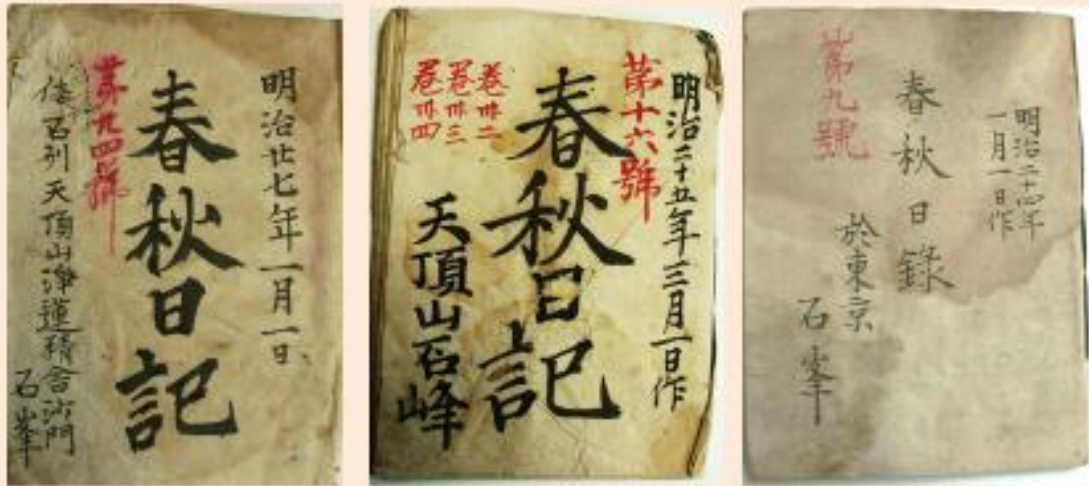 明治廿七年一月一日
春秋日記
第九四號
天頂山淨蓮精舍沙門
石峯
明治二十五年三月一日作
第十六號
春秋日記
卷卅二
卷卅三
卷卅四
天頂山石峰
明治二十四年
一月一日作
春秋日錄
第九號
於東京
石峯